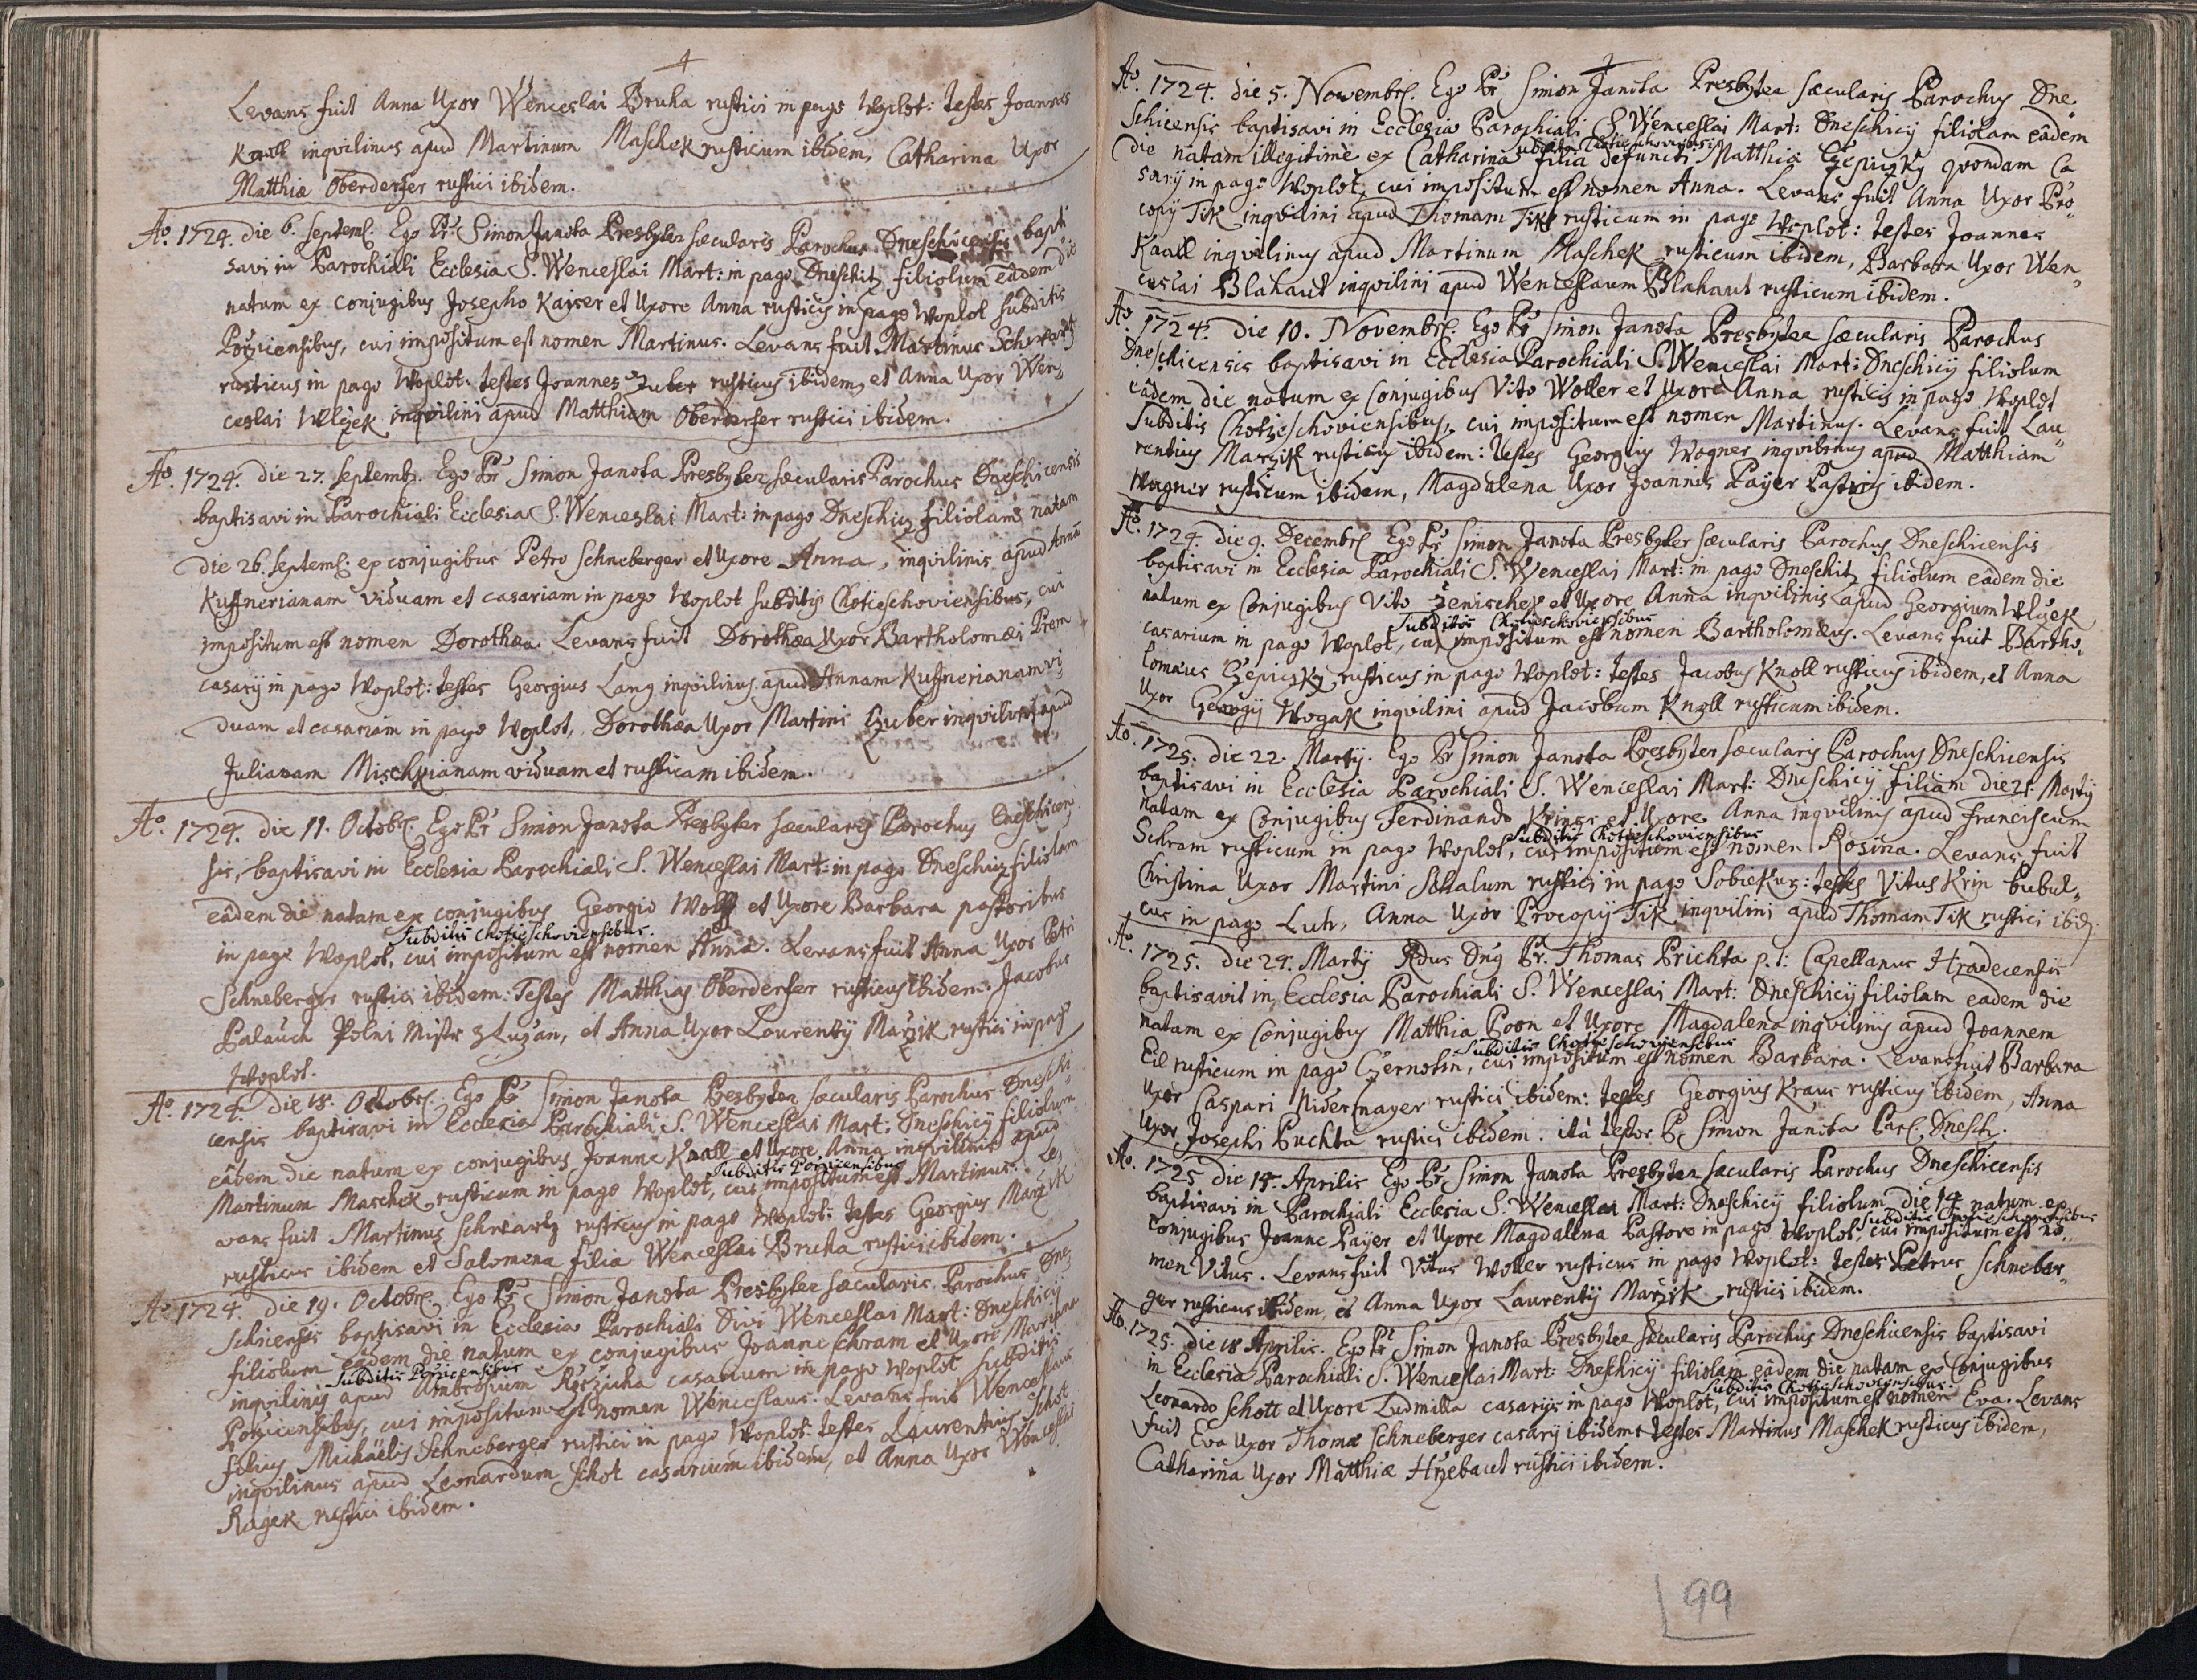 Levans fuit Anna Uxor Wenceslai Bruha rustici in pago Woplot: testes Joannes
Knoll inqvilinus apud Martinum Maschek rusticum ibidem, Catharina Uxor
Matthiæ Oberderfer rustici ibidem.
Aō. 1724. die 6. Septemb. Ego Pr Simon Janota Presbyter sæcularis Parochus Dneschicensis bapti
savi in Parochiali Ecclesia S. Wenceslai Mart: in pago Dneschitz filiolum eadem die
natum ex conjugibus Josepho Kayser et Uxore Anna rusticis in pago Woplot subditis
Poržicensibus, cui impositum est nomen Martinus. Levans fuit Martinus Schwartz
rusticus in pago Woplot: testes Joannes Zuber rusticus ibidem, et Anna Uxor Wen,,
ceslai Wlczek inqvilini apud Matthiam Oberderfer rustici ibidem.
Aō. 1724. die 27. Septemb. Ego Pr Simon Janota Presbyter sæcularis Parochus Dneschicensis
baptisavi in Parochiali Ecclesia S. Wenceslai Mart: in pago Dneschicz filiolam natam
die 26. Septemb. ex conjugibus Petro Schneberger et Uxore Anna, inqvilinis apud Annam
Kuffnerianam viduam et casariam in pago Woplot subditis Chotieschoviensibus, cui
impositum est nomen Dorothæa. Levans fuit Dorothæa Uxor Bartholomæi Prem
casarij in pago Woplot: testes Georgius Lang inqvilinus apud Annam Kuffnerianam vi,,
duam et casariam in pago Woplot, Dorothæa Uxor Martini Huber inqvilini apud
Julianam Mischkianam viduam et rusticam ibidem.
Aō. 1724. die 11. Octobr. Ego Pr Simon Janota Presbyter sæcularis Parochus Dneschicen
sis, baptisavi in Ecclesia Parochiali S. Wenceslai Mart: in pago Dneschicz filiolam
eâdem die natam ex conjugibus Georgio Wolff et Uxore Barbara pastoribus
subditis Chotieschoviensibus.
in pago Woplot, cui impositum est nomen Anna. Levans fuit Anna Uxor Petri
Schneberger rustici ibidem. Testes Matthias Oberderfer rusticus ibidem. Jacobus
Palauch Polni Mistr z Lužan, et Anna Uxor Laurentij Maržik rustici in pago
Woplot.
Aō. 1724. die 18. Octobr. Ego Pr Simon Janota Presbyter sæcularis Parochus Dneschi
censis baptisavi in Ecclesia Parochiali S. Wenceslai Mart: Dneschicij filiolum
eâdem die natum ex conjugibus Joanne Knoll et Uxore Anna inqvilinis apud
subditis Poržicensibus
Martinum Maschek rusticum in pago Woplot, cui impositum est Martinus. Le,,
vans fuit Martinus Schwartz rusticus in pago Woplot: testes Georgius Maržik
rusticus ibidem et Salomena filia Wenceslai Bruha rustici ibidem.
Aō. 1724. die 19. Octobr. Ego Pr Simon Janota Presbyter sæcularis Parochus Dne,,
schicensis baptisavi in Ecclesia Parochiali Divi Wenceslai Mart: Dneschicij
filiolum eâdem die natum ex conjugibus Joanne Schram et Uxore Marianna
subditis Poržicensibus
inqvilinis apud Ambrosium Ržržicha casarium in pago Woplot subditis
Poržicensibus, cui impositum est nomen Wenceslaus. Levans fuit Wenceslaus
filius Michaëlis Schneberger rustici in pago Woplot: testes Laurentius Schot
inqvilinus apud Leonardum Schot casarium ibidem, et Anna Uxor Wenceslai
Ragek rustici ibidem.
Aō. 1724. die 5. Novembr. Ego Pr Simon Janota Presbyter sæcularis Parochus Dne,,
schicensis baptisavi in Ecclesia Parochiali S. Wenceslai Mart: Dneschicij filiolam eâdem
subdita Chotieschoviensis
die natam illegitimè ex Catharina filia defuncti Matthiæ Czepiczky qvondam Ca
sarij in pago Woplot, cui impositum est nomen Anna. Levans fuit Anna Uxor Pro,,
copij Tik inqvilini apud Thomam Tik rusticum in pago Woplot: testes Joannes
Knoll inqvilinus apud Martinum Maschek rusticum ibidem, Barbara Uxor Wen,,
ceslai Blahaut inqvilini apud Wenceslaum Blahaut rusticum ibidem.
Aō. 1724. die 10. Novembr. Ego Pr Simon Janota Presbyter sæcularis Parochus
Dneschicensis baptisavi in Ecclesia Parochiali S. Wenceslai Mart: Dneschicij filiolum
eâdem die natum ex Conjugibus Vito Woller et Uxore Anna rusticis in pago Woplot
Subditis Chotieschoviensibus, cui impositum est nomen Martinus. Levans fuit Lau,,
rentius Maržik rusticus ibidem: testes Georgius Wagner inqvilinus apud Matthiam
Wagner rusticum ibidem, Magdalena Uxor Joannis Payer Pastoris ibidem.
Aō. 1724. die 9. Decembr. Ego Pr Simon Janota Presbyter sæcularis Parochus Dneschicensis
baptisavi in Ecclesia Parochiali S. Wenceslai Mart: in pago Dneschitz filiolum eâdem die
natum ex Conjugibus Vito Jenischek et Uxore Anna inqvilinis apud Georgium Wlczek
Subditis Chotieschoviensibus
casarium in pago Woplot, cui impositum est nomen Bartholomæus. Levans fuit Bartho,,
lomæus Czepiczky rusticus in pago Woplot: testes Jacobus Knoll rusticus ibidem, et Anna
Uxor Georgij Wogak inqvilini apud Jacobum Knoll rusticum ibidem.
Aō. 1725. die 22. Martij. Ego Pr Simon Janota Presbyter sæcularis Parochus Dneschicensis
baptisavi in Ecclesia Parochiali S. Wenceslai Mart: Dneschicij filiam die 21. Martij
natam ex Conjugibus Ferdinando Kriner et Uxore Anna inqvilinis apud Franciscum
Subditis Chotieschoviensibus
Schram rusticum in pago Woplot, cui impositum est nomen Rosina. Levans fuit
Christina Uxor Martini Schalum rustici in pago Sobiekurz: testes Vitus Krin bubul,,
cus in pago Luh, Anna Uxor Procopij Tik inqvilini apud Thomam Tik rustici ibid.
Aō. 1725. die 24. Martij Rdus Dnus Pr. Thomas Prichta p. t. Capellanus Hradecensis
baptisavit in Ecclesia Parochiali S. Wenceslai Mart: Dneschicij filiolam eadem die
natam ex Conjugibus Matthia Poon et Uxore Magdalena inqvilinis apud Joannem
subditis Chotieschoviensibus
Eil rusticum in pago Czernotin, cui impositum est nomen Barbara. Levans fuit Barbara
Uxor Caspari Nidermayer rustici ibidem: testes Georgius Kraus rusticus ibidem, Anna
Uxor Josephi Puchta rustici ibidem. ita testor Pr Simon Janota Par. Dnesch.
Aō. 1725 die 15. Aprilis Ego Pr Simon Janota Presbyter sæcularis Parochus Dneschicensis
baptisavi in Parochiali Ecclesia S. Wenceslai Mart: Dneschicij filiolum die 14 natum ex
subditis Chotieschoviensibus
conjugibus Joanne Payer et Uxore Magdalena Pastore in pago Woplot, cui impositum est no,,
men Vitus. Levans fuit Vitus Woller rusticus in pago Woplot: testes Petrus Schneber,,
ger rusticus ibidem, et Anna Uxor Laurentij Maržik rustici ibidem.
Aō. 1725. die 18 Aprilis. Ego Pr Simon Janota Presbyter sæcularis Parochus Dneschicensis baptisavi
in Ecclesia Parochiali S. Wenceslai Mart: Dneschicij filiolam eâdem die natam ex Conjugibus
subditis Chotieschoviensibus.
Leonardo Schott et Uxore Ludmilla casarijs in pago Woplot, cui impositum est nomen Eva. Levans
fuit Eva Uxor Thomæ Schneberger casarij ibidem: testes Martinus Maschek rusticus ibidem,
Catharina Uxor Matthiæ Hrzebaut rustici ibidem.
99